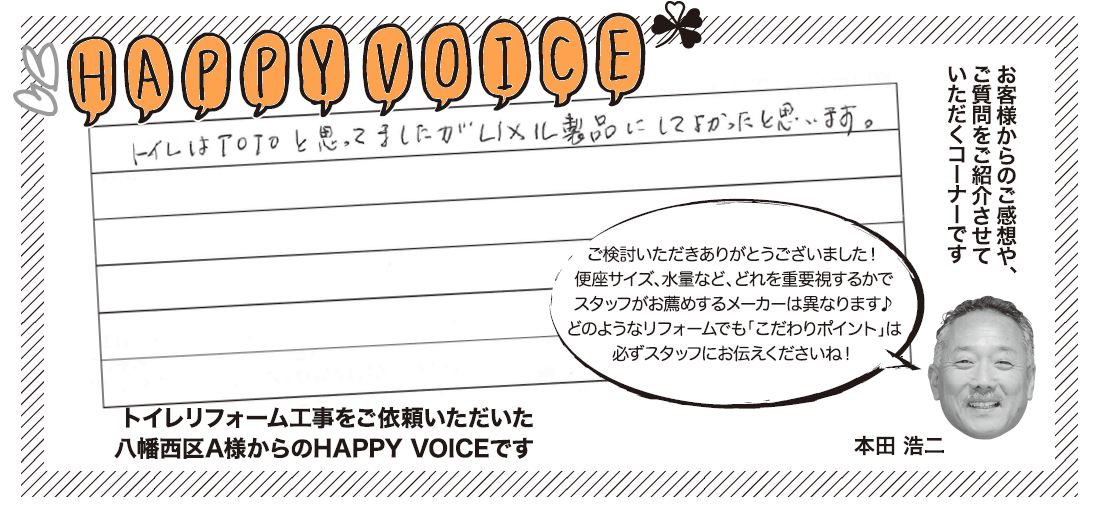 HAPPY VOICE
お客様からのご感想や、
ご質問をご紹介させて
いただくコーナーです
トイレはTOTOと思ってましたがLIXIL製品にしてよかったと思います。
ご検討いただきありがとうございました！
便座サイズ、水量など、どれを重要視するかで
スタッフがお薦めするメーカーは異なります♪
どのようなリフォームでも「こだわりポイント」は
必ずスタッフにお伝えくださいね！
トイレリフォーム工事をご依頼いただいた
八幡西区A様からのHAPPY VOICEです
本田 浩二